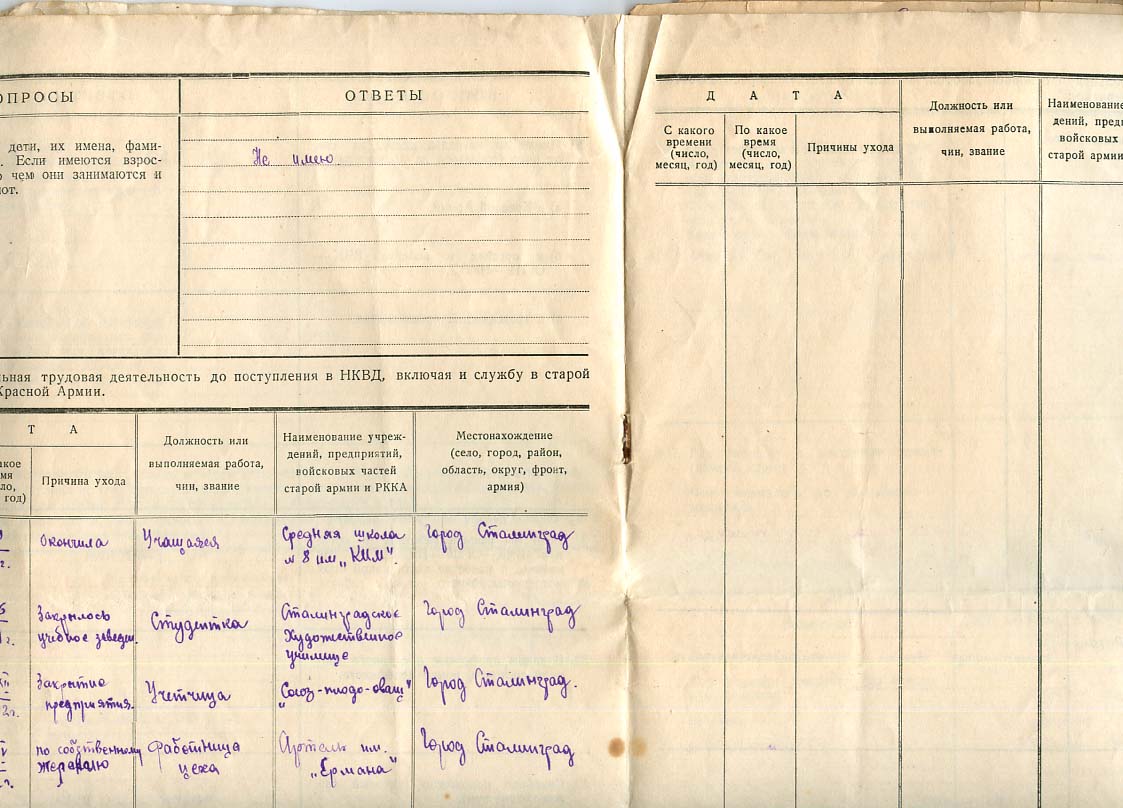 ОПРОСЫ
ОТВЕТЫ
дети, их имена, фами-
Если имеются взрос-
чем они занимаются и
ют.
Не имею.
ьная трудовая деятельность до поступления в НКВД, включая и службу в старой
Красной Армии.
Т А
акое
мя
ло,
год)
Причина ухода
Должность или
выполняемая работа,
чин, звание
Наименование учреж-
дений, предприятий,
войсковых частей
старой армии и РККА
Местонахождение
(село, город, район,
область, округ, фронт,
армия)
г.
Окончила
Учащаяся
Средняя школа
№ 8 им „КИМ“.
Город Сталинград
г.
Закрылось
учебное заведен.
Студентка
Сталинградское
Художественное
училище
Город Сталинград
2г.
Закрытие
предприятия.
Учетчица
„Союз-плодо-овощ“
Город Сталинград.
г.
по собственному
желанию
Работница
цеха
Артель им.
„Ермана“
Город Сталинград
Д А Т А
С какого
времени
(число,
месяц, год)
По какое
время
(число,
месяц, год)
Причины ухода
Должность или
выполняемая работа,
чин, звание
Наименование
дений, пред
войсковых
старой армии